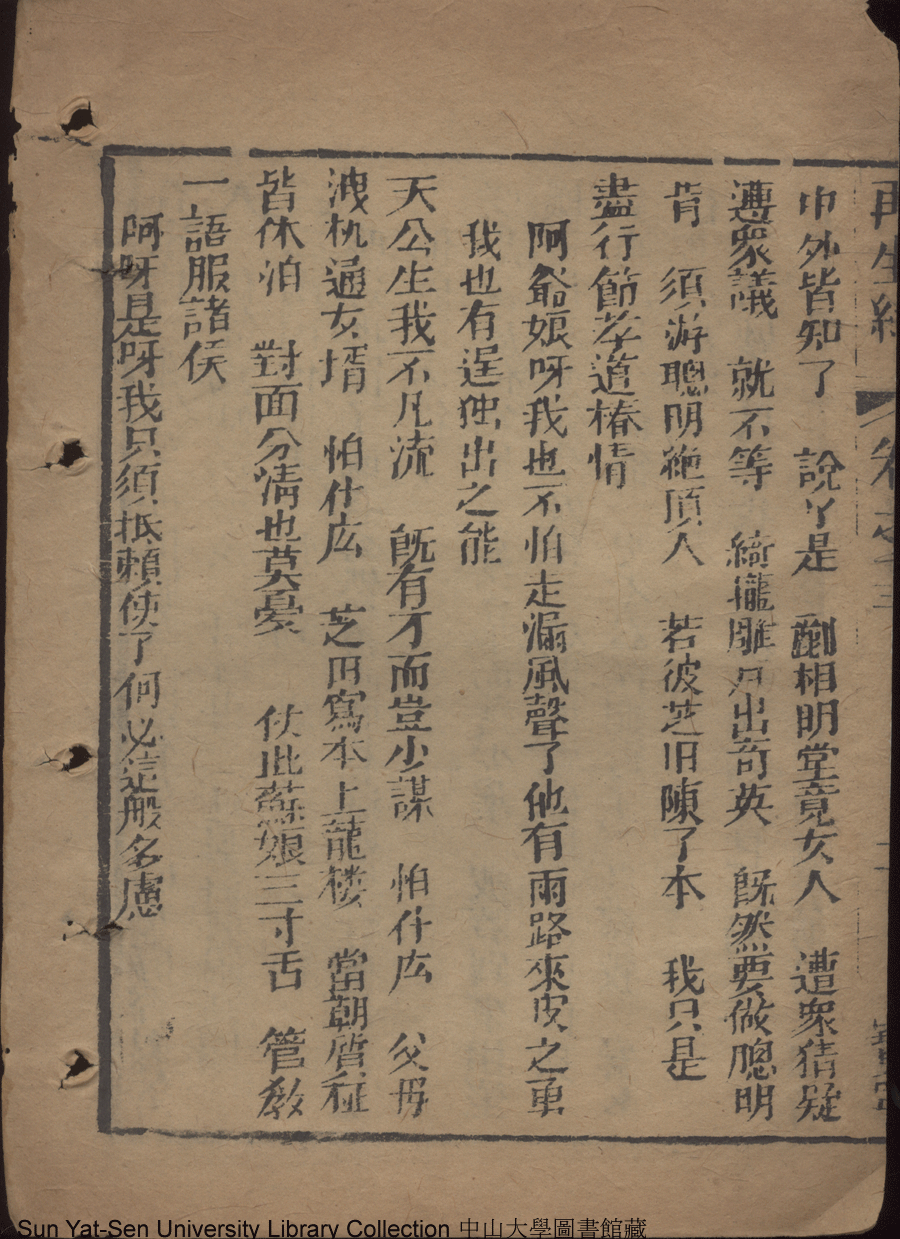 再生緣 卷之三
中外皆知了 說丫是 酈相明堂竟女人 遭衆猜疑
遭衆議 就不等 綺櫳雕 出奇英 旣然要做聰明
肯 須游聰明絶頂人 若彼芝旧陳了本 我只是
盡行節孝道椿情
阿爺娘呀我也不怕走漏風聲了他有雨路來皮之重
我也有逞独出之能
天公生我不凡流 旣有才而豈少謀 怕什庅 父毋
洩机通女壻 怕什庅 芝田寫本上龍楼 當朝質
皆休泊 對面分情也莫憂 仗此蘇娘三寸舌 管教
一語服諸侯
阿呀是呀我只須抵賴使了何必這般多慮
Sun Yat-Sen University Library Collection 中山大學圖書館藏